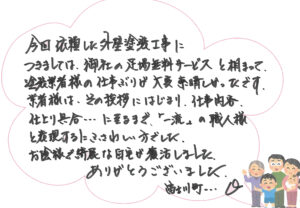 今回依頼した外壁塗装工事に
つきましては、御社の足場無料サービスと相まって、
塗装業者様の仕事ぶりが大変素晴しかったです。
業者様は、その挨拶にはじまり、仕事内容、
仕上り具合…に至るまで、「一流」の職人様
と表現するにふさわしい方でした。
お陰様で綺麗な自宅が復活しました。
ありがとうございました。
富士川町…